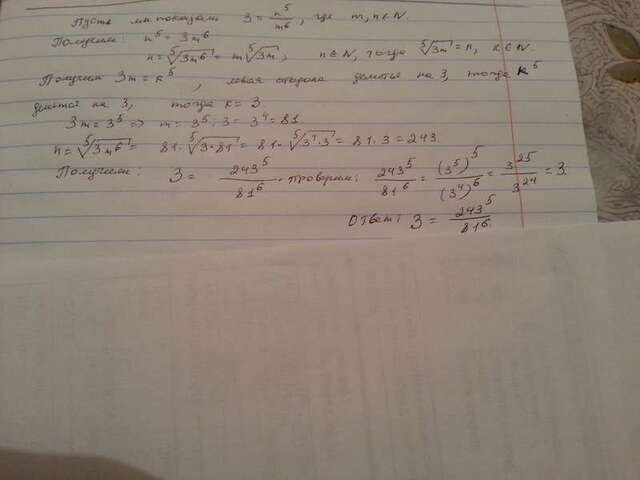 Пусть мы показали 3 = n⁵/m⁶, где m, n ∈ N.
Получим: n⁵ = 3m⁶
n = ⁵√(3m⁶) = m ⁵√(3m), n ∈ N, тогда ⁵√(3m) = n, k ∈ N.
Получим 3m = k⁵, левая сторона делится на 3, тогда k⁵
делится на 3, тогда k = 3.
3m = 3⁵ => m = 3⁵ : 3 = 3⁴ = 81
n = ⁵√(3m⁶) = 81 · ⁵√(3·81) = 81 · ⁵√(3⁴·3) = 81 · 3 = 243.
Получили: 3 = 243⁵/81⁶. Проверим: 243⁵/81⁶ = (3⁵)⁵/(3⁴)⁶ = 3²⁵/3²⁴ = 3.
Ответ: 3 = 243⁵/81⁶.